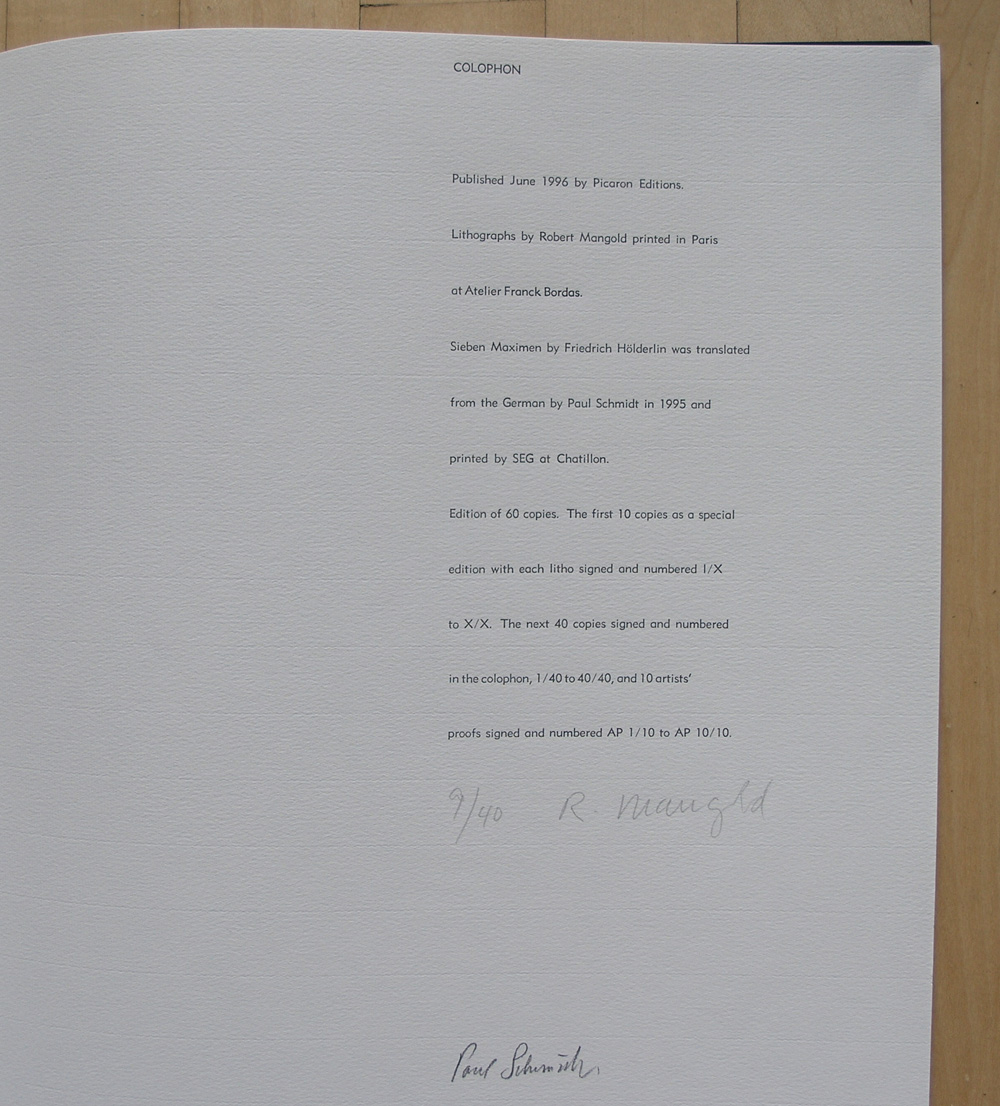 COLOPHON
Published June 1996 by Picaron Editions.
Lithographs by Robert Mangold printed in Paris
at Atelier Franck Bordas.
Sieben Maximen by Friedrich Hölderlin was translated
from the German by Paul Schmidt in 1995 and
printed by SEG at Chatillon.
Edition of 60 copies. The first 10 copies as a special
edition with each litho signed and numbered I/X
to X/X. The next 40 copies signed and numbered
in the colophon, 1/40 to 40/40, and 10 artists’
proofs signed and numbered AP 1/10 to AP 10/10.
9/40 R. Mangold
Paul Schmidt